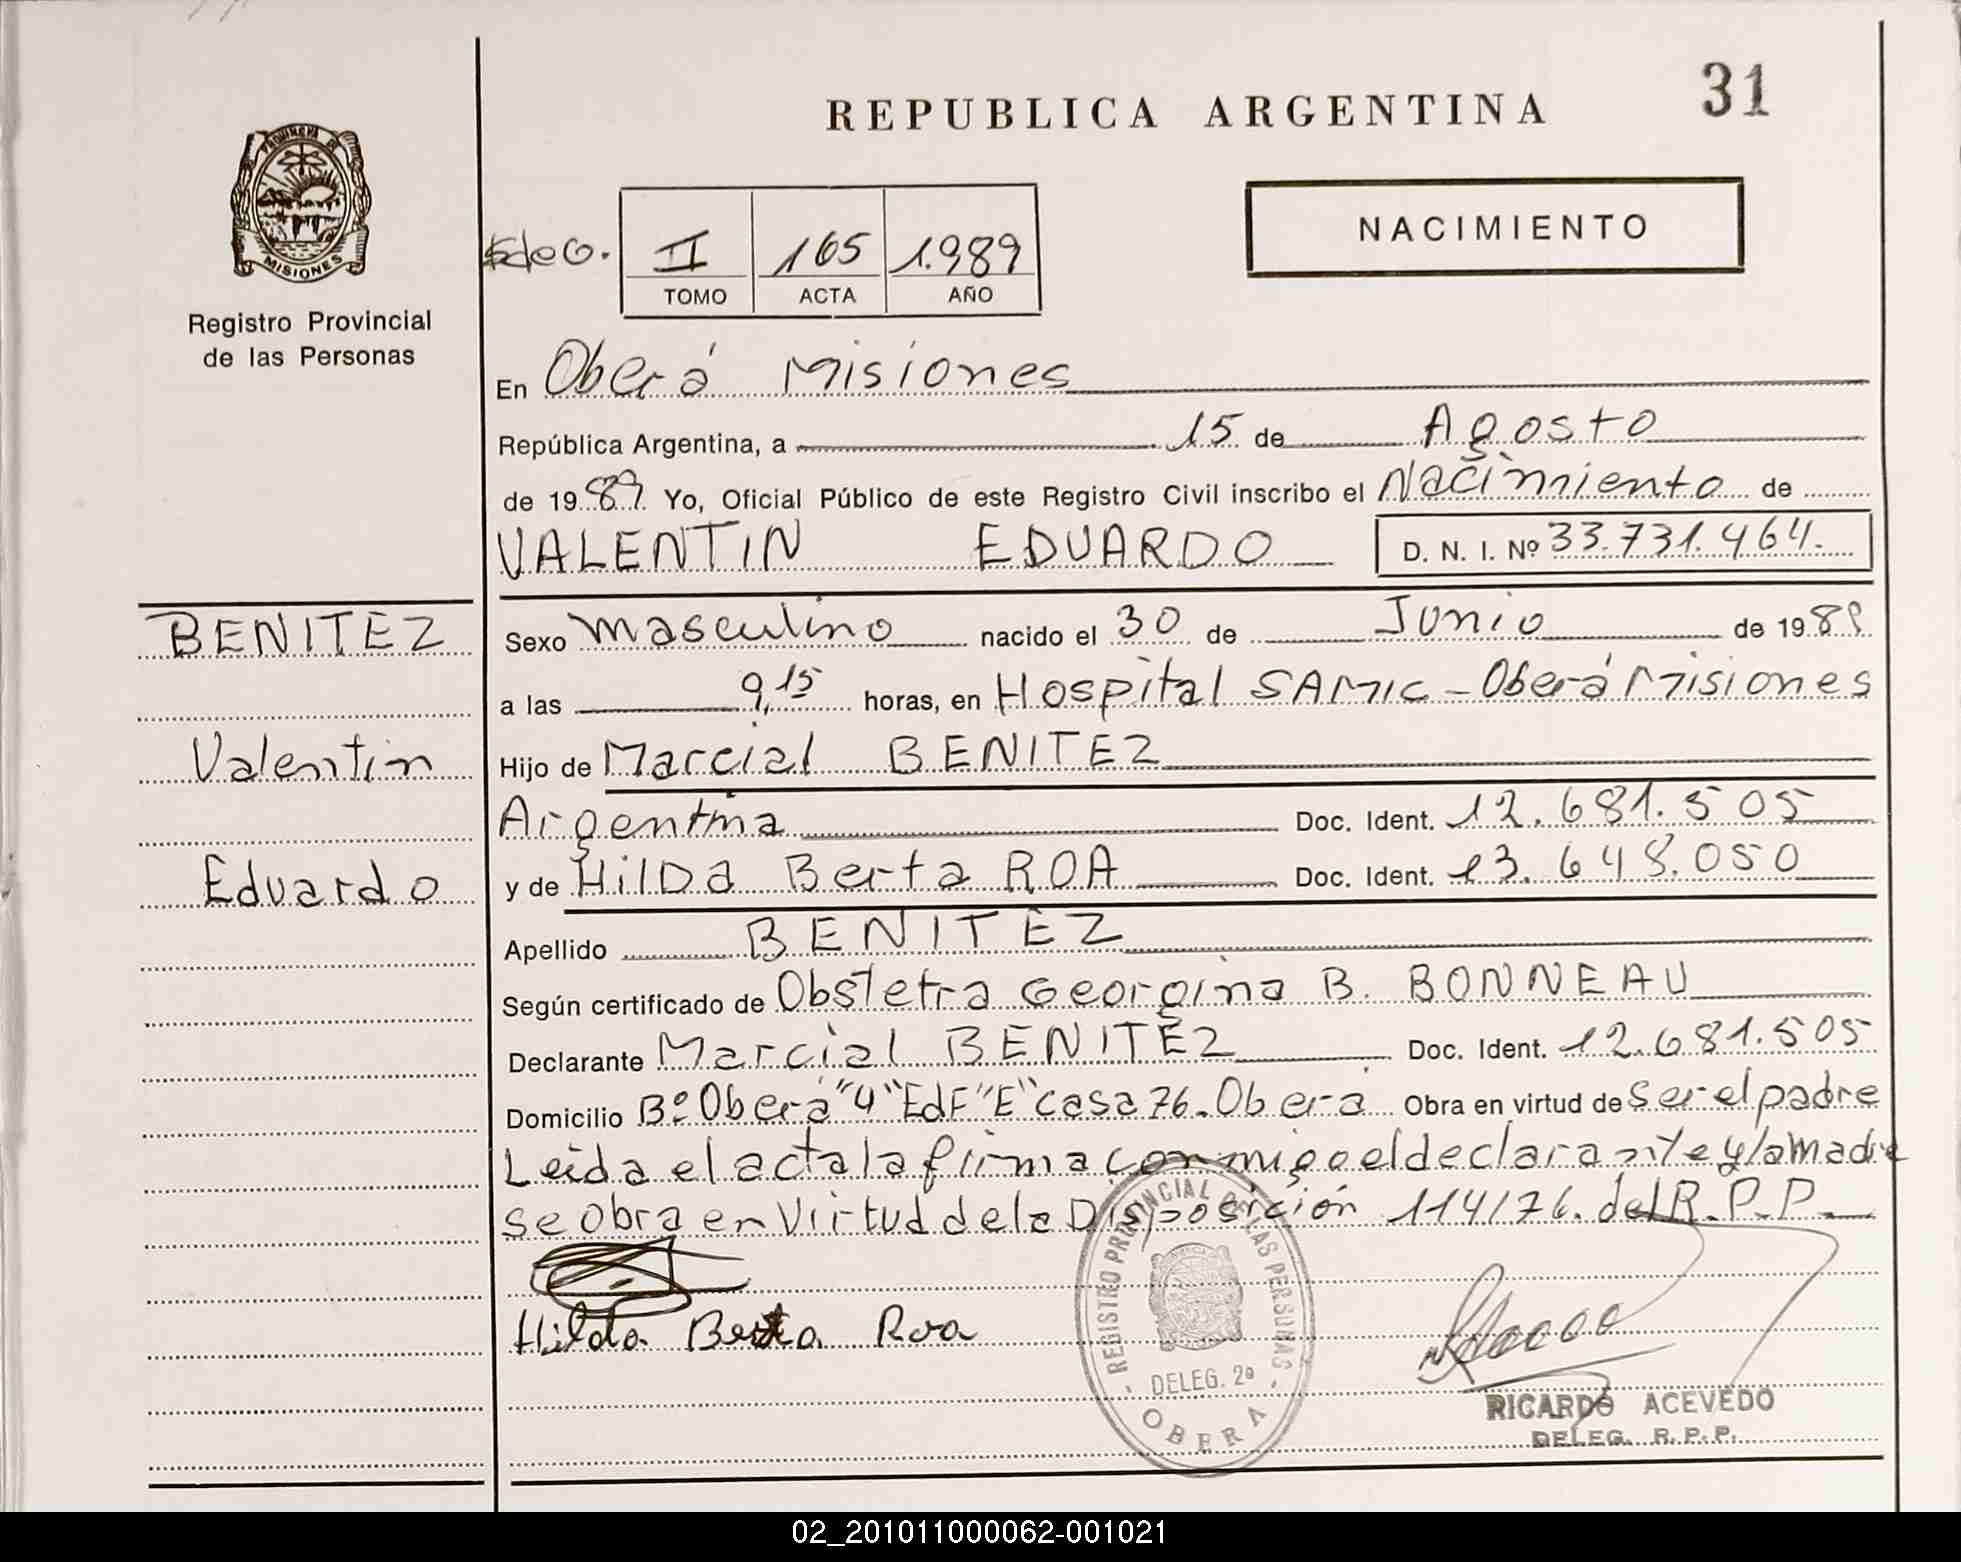 REPUBLICA ARGENTINA
31
PROVINCIA DE
MISIONES
Registro Provincial
de las Personas
II 165 1.989
TOMO ACTA AÑO
NACIMIENTO
En Oberá Misiones
República Argentina, a 15 de Agosto
de 1989 Yo, Oficial Público de este Registro Civil inscribo el Nacimiento de
VALENTIN EDUARDO D. N. I. Nº 33.731.464.
BENITEZ
Valentin
Eduardo
Sexo masculino nacido el 30 de Junio de 1989
a las 9,15 horas, en Hospital SAMIC - Oberá Misiones
Hijo de Marcial BENITEZ
Argentina Doc. Ident. 12.681.505
y de HilDa Berta ROA Doc. Ident. 13.648.050
Apellido BENITEZ
Según certificado de Obstetra Georgina B. BONNEAU
Declarante Marcial BENITEZ Doc. Ident. 12.681.505
Domicilio Bº Oberá "4" Edf "E" casa 76. Oberá Obra en virtud de ser el padre
Leida el acta la firma conmigo el declarante y la Madre
se obra en Virtud de la Disposición 114/76. del R.P.P.
Hilda Berta Roa
REGISTRO PROVINCIAL DE LAS PERSONAS
DELEG. 2ª
OBERA
RICARDO ACEVEDO
DELEG. R. P. P.
02_201011000062-001021